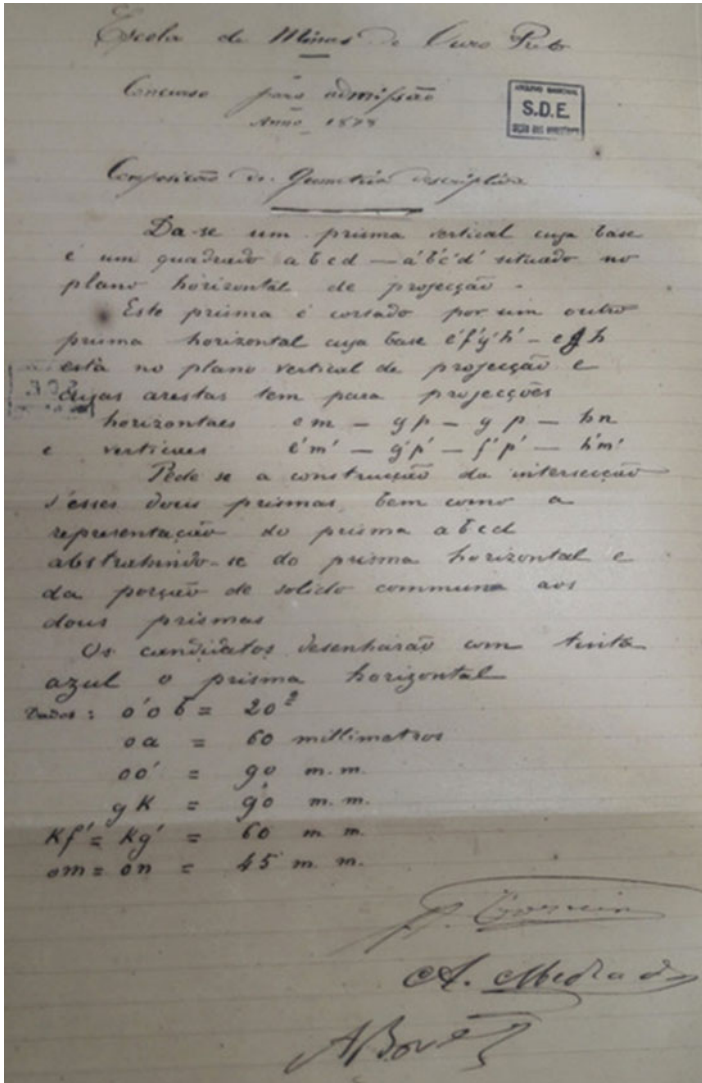 Escola de Minas de Ouro Preto
Concurso para admissão
Anno 1878
ARCHIVO NACIONAL
S.D.E.
Composição de Geometria descriptiva
Da-se um prisma vertical cuja base
é um quadrado a b c d — a'b'c'd' situado no
plano horizontal de projecção.
Este prisma é cortado por um outro
prisma horizontal cuja base e'f'g'h' — e g h
está no plano vertical de projecção e
cujas arestas tem para projecções
horizontaes em — gp — gp — hn
e verticaes e'm' — g'p' — f'p' — h'm'
Pede se a construcção da intersecção
d'esses dous prismas bem como a
representação do prisma a b c d
abstrahindo-se do prisma horizontal e
da porção de solido commum aos
dous prismas
Os candidatos desenharão com tinta
azul o prisma horizontal
Dados: o'o b = 20º
oa = 60 millimetros
oo' = 90 m.m.
gK = 90 m.m.
Kf' = Kg' = 60 m m.
om = on = 45 m.m.
A. Bovet